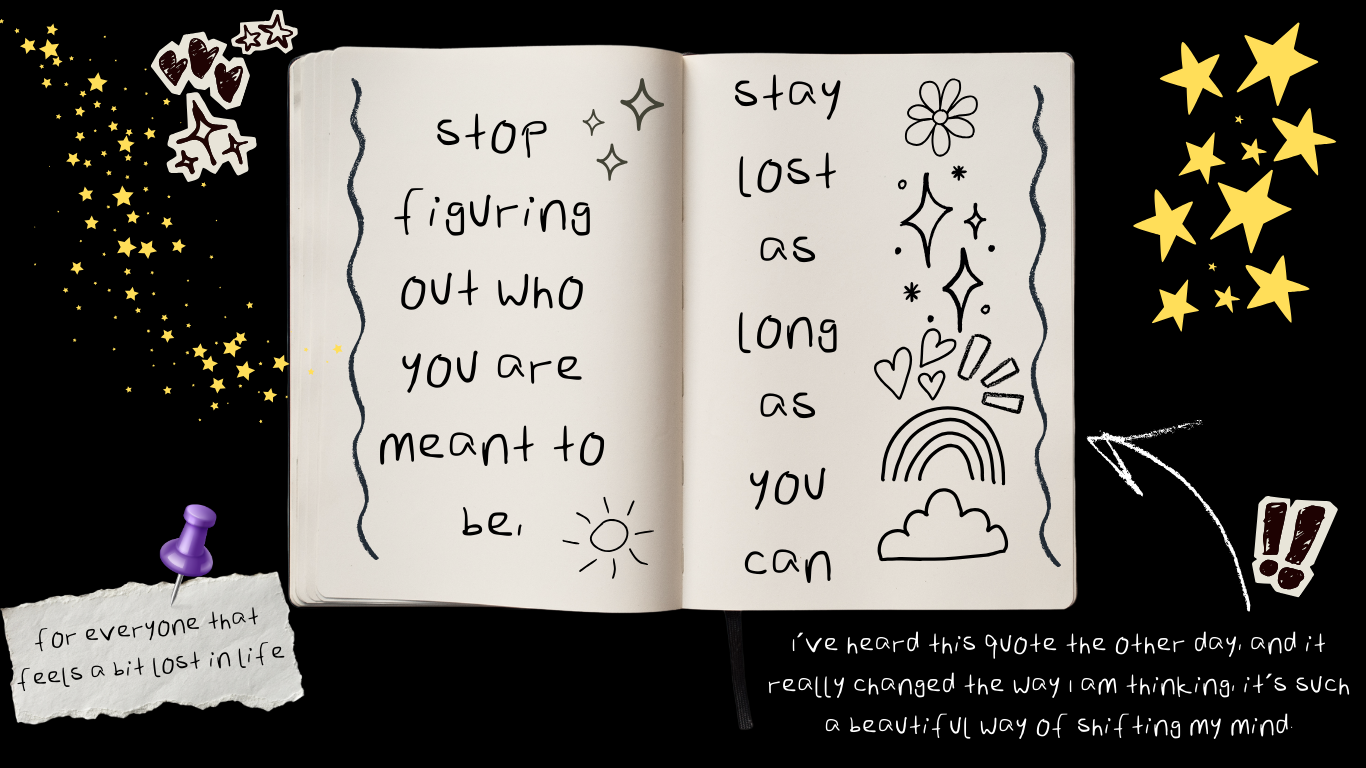 stop
figuring
out who
you are
meant to
be,
stay
lost
as
long
as
you
can
for everyone that
feels a bit lost in life
i've heard this quote the other day, and it
really changed the way i am thinking, it's such
a beautiful way of shifting my mind.